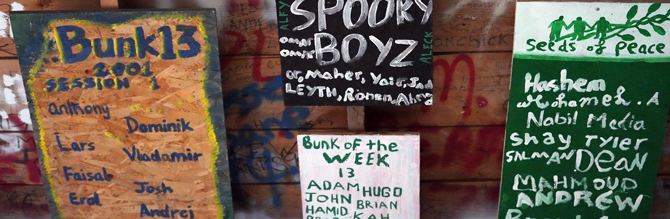 Bunk 13
2001
SESSION 1
anthony
Dominik
Lars
Vladamir
Faisal
Josh
Erol
Andrej
SPOOKY
BOYZ
ALEY
omar
ALECK
or, Maher, Yair, Jad
LEYTH, Ronen,
BUNK OF the
WEEK
13
ADAM HUGO
JOHN BRIAN
HAMID
Seeds of Peace
Hashem
Mohameh. A
Nabil Media
Shay Tyler
SALMAN DEAN
MAHMOUD
ANDREW